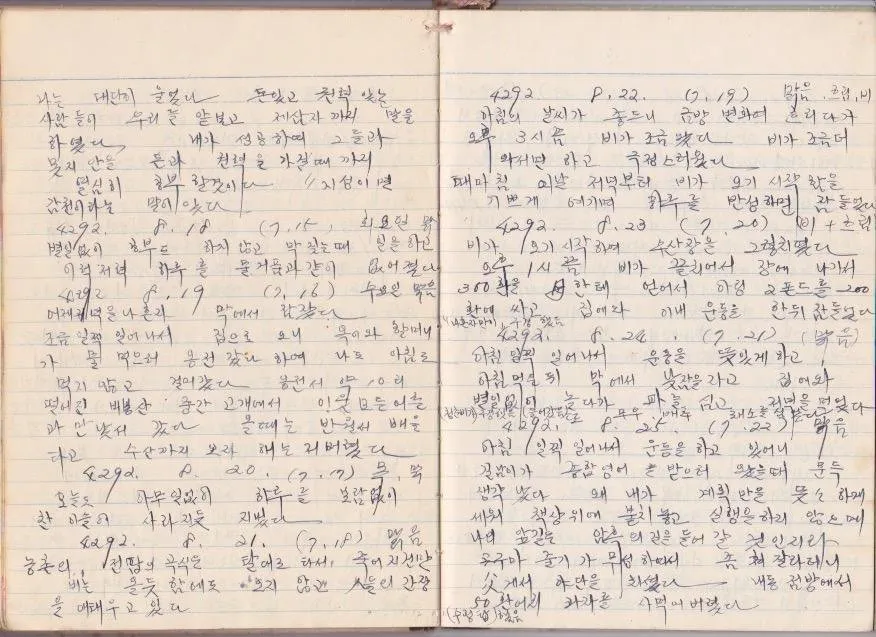 나는 대단히 울었다 돈있고 권력 있는
사람들이 우리를 얕보고 제삼자 까지 말을
하였다, 내가 성공하여 그들과
못지 안는 돈과 권력을 가질때 까지
열심히 호부 할것이다 "지성이면
감천이라는 말이 있다
4292. 8. 18 (7, 15, 화요일 맑
별일없이 호부도 하지 않고 막 짓는때 일을 하고
이럭저럭 하루를 물거품과 같이 없어졌다
4292 8. 19 (7, 16) 수요일 맑음
어제저녁을 나혼자 막에서 잠잤다
조금일찍 일어나서 집으로 오니 옥이와 할머니
가 물 먹으러 웅천 갔다 하여 나도 아침도
먹지 않고 걸어갔다 웅천서 약 10리
떨어진 중간 고개에서 이웃 모든이들
과 만났서 갔다 올때는 반월서 배을
타고 수산까지 오라 해는 저버렸다
4292. 8. 20. (7, 17) 목, 맑
오늘도 아무일없이 하루를 보람없이
찬 이슬이 사라지듯 지냈다
4292. 8. 21. (7, 18) 맑음
농촌의, 전답의 곡식은 탈대로 타서, 죽어지건만
비는 올듯 함에도 오지 않고 사람들의 간장
을 애태우고 있다
4292 8. 22. (7, 19) 맑음, 흐림, 비
아침의 날씨가 좋드니 금방 변화여 흐리다가
오후 3시 쯤 비가 조금 왔다 비가 조금더
와서면 하고 걱정스러웠다
때마침 이날 저녁부터 비가 오기 시작 함을
기쁘게 여기며 하루를 반성하면 잠들었다
4292. 8. 23 (7, 20) 비 + 흐림
비가 오기 시작하여 수산장을
오후 1시 쯤 비가 끌리어서 장에 나가서
300환을 한테 얻어서 하링 2폰드를 200
환에 싸고 집에와 이내 운동을 한뒤 잠들었다
4292. 8. 24. (7, 21) (맑음)
아침 일찍 일어나서 운동을 뜻있게 하고
아침먹은 뒤 막에서 낮잠을 자고 집에와
별일없이 놀다가 파를 심고 저녁을 먹었다
무우, 배추 채소를 심었다
4292. 8. 25. (7. 22) 맑음
아침 일찍 일어나서 운동을 하고 있으니
길남이가 종합영어 를 받으러 왔을때 문득
생각 났다 왜 내가 계획만을 뜻 수 하게
세워 책상위에 붙치 놓고 실행을 하지 않으며
나의 앞길는 암흑의 길을 들어 갈 것인지라
고구마 줄기가 무성 하여서 좀 쳐 잘라더니
父게서 야단을 치셨다 내동 점방에서
50환어치 과자를 사먹어 버렸다